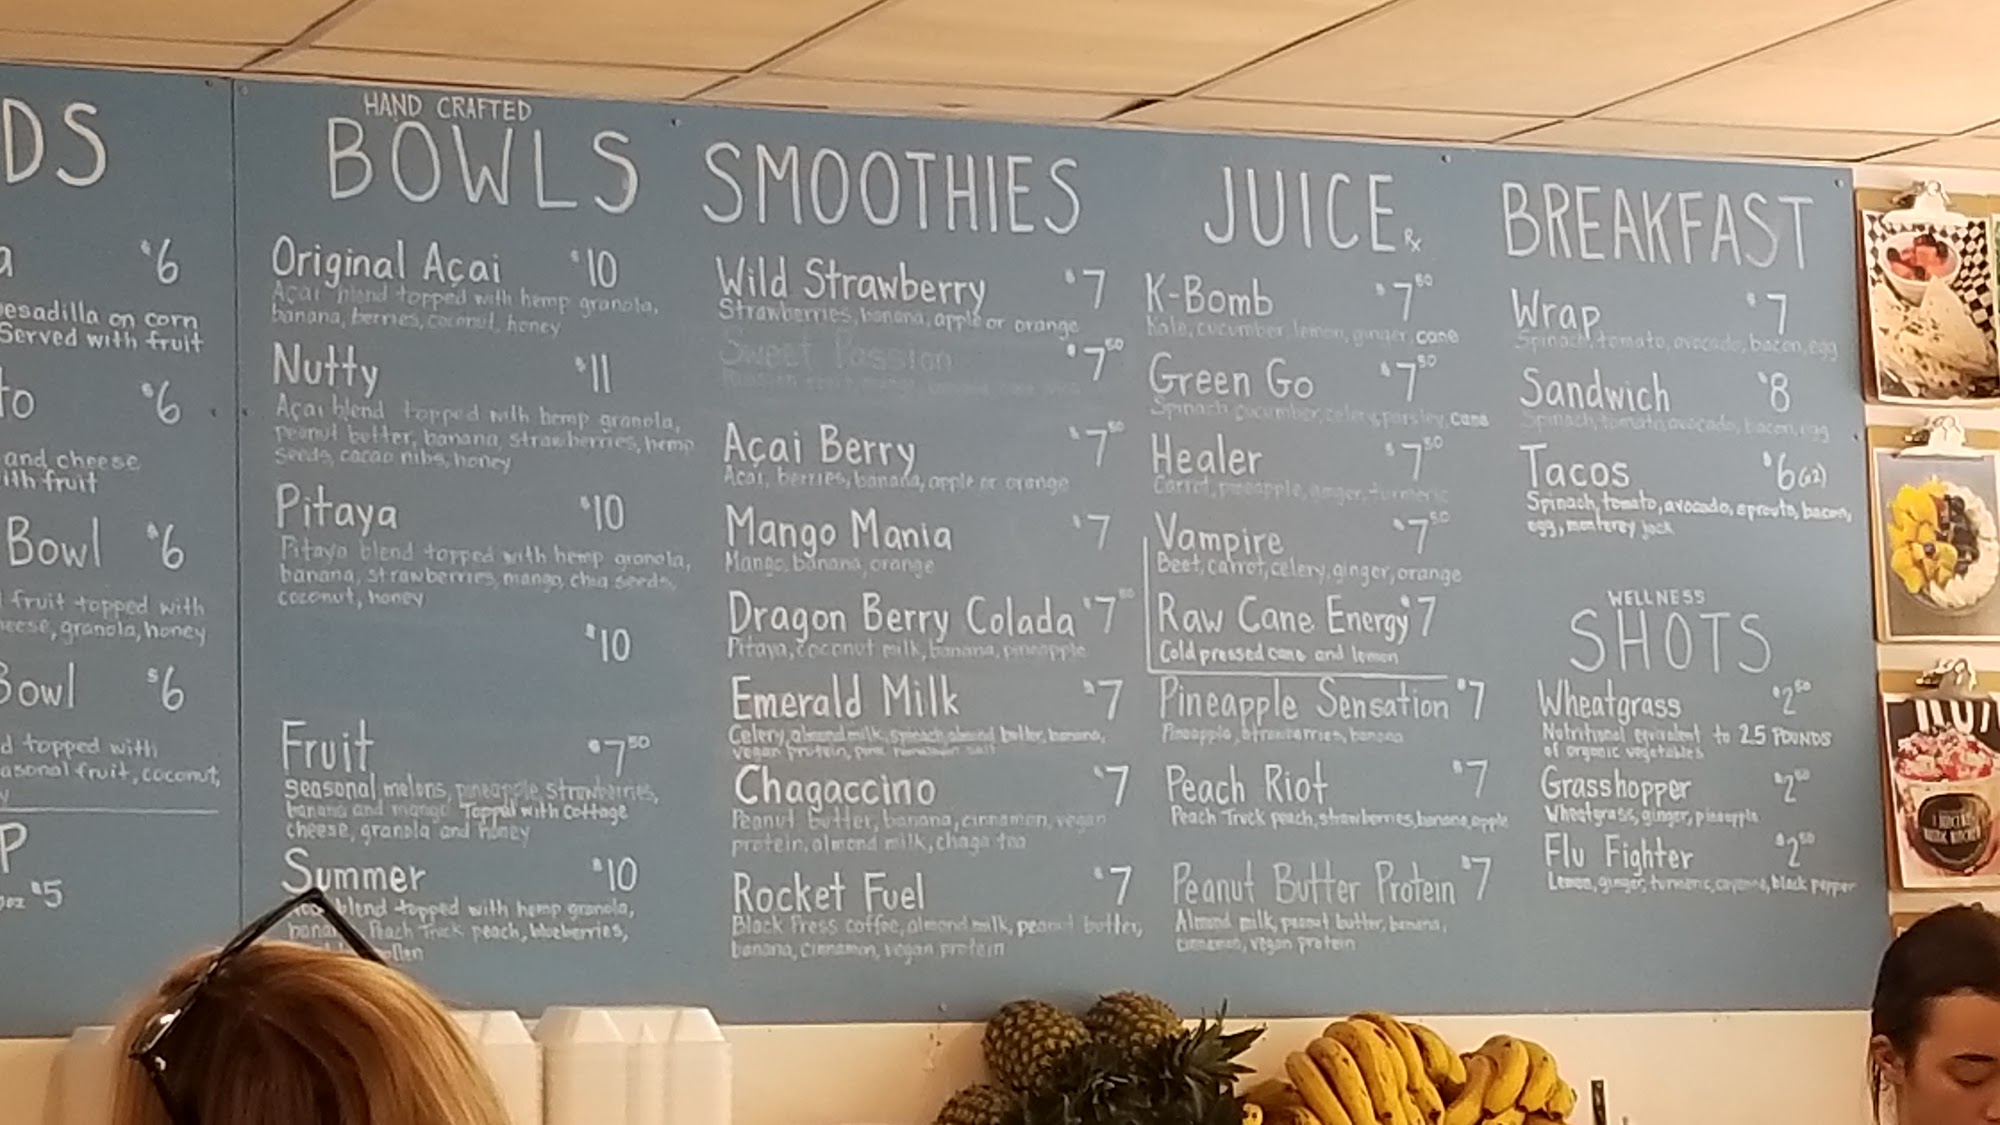 DS
$6
esadilla on corn
Served with fruit
to $6
and cheese
ith fruit
Bowl $6
fruit topped with
eese, granola, honey
Bowl $6
d topped with
asonal fruit, coconut,
y
P
$5
HAND CRAFTED
BOWLS
Original Açai $10
Açai blend topped with hemp granola,
banana, berries, coconut, honey
Nutty $11
Açai blend topped with hemp granola,
peanut butter, banana, strawberries, hemp
seeds, cacao nibs, honey
Pitaya $10
Pitaya blend topped with hemp granola,
banana, strawberries, mango, chia seeds,
coconut, honey
$10
Fruit $7.50
seasonal melons, pineapple, strawberries,
banana and mango. Topped with cottage
cheese, granola and honey
Summer $10
blend topped with hemp granola,
Peach Truck peach, blueberries,
SMOOTHIES
Wild Strawberry $7
Strawberries, banana, apple or orange
Sweet Passion $7.50
Açai Berry $7.50
Acai, berries, banana, apple or orange
Mango Mania $7
Mango, banana, orange
Dragon Berry Colada $7.50
Pitaya, coconut milk, banana, pineapple
Emerald Milk $7
Celery, almond milk, spinach, almond butter, banana,
vegan protein, pink himalayan salt
Chagaccino $7
Peanut butter, banana, cinnamon, vegan
protein, almond milk, chaga tea
Rocket Fuel $7
Black Press coffee, almond milk, peanut butter,
banana, cinnamon, vegan protein
JUICE Rx
K-Bomb $7.50
Kale, cucumber, lemon, ginger, cane
Green Go $7.50
Spinach, cucumber, celery, parsley, cane
Healer $7.50
Carrot, pineapple, ginger, turmeric
Vampire $7.50
Beet, carrot, celery, ginger, orange
Raw Cane Energy $7
Cold pressed cane and lemon
Pineapple Sensation $7
Pineapple, strawberries, banana
Peach Riot $7
Peach Truck peach, strawberries, banana, apple
Peanut Butter Protein $7
Almond milk, peanut butter, banana,
cinnamon, vegan protein
BREAKFAST
Wrap $7
Spinach, tomato, avocado, bacon, egg
Sandwich $8
Spinach, tomato, avocado, bacon, egg
Tacos $6 (x2)
Spinach, tomato, avocado, sprouts, bacon,
egg, monterey jack
WELLNESS
SHOTS
Wheatgrass $2.50
Nutritional equivalent to 2.5 POUNDS
of organic vegetables
Grasshopper $2.50
Wheatgrass, ginger, pineapple
Flu Fighter $2.50
Lemon, ginger, turmeric, cayenne, black pepper